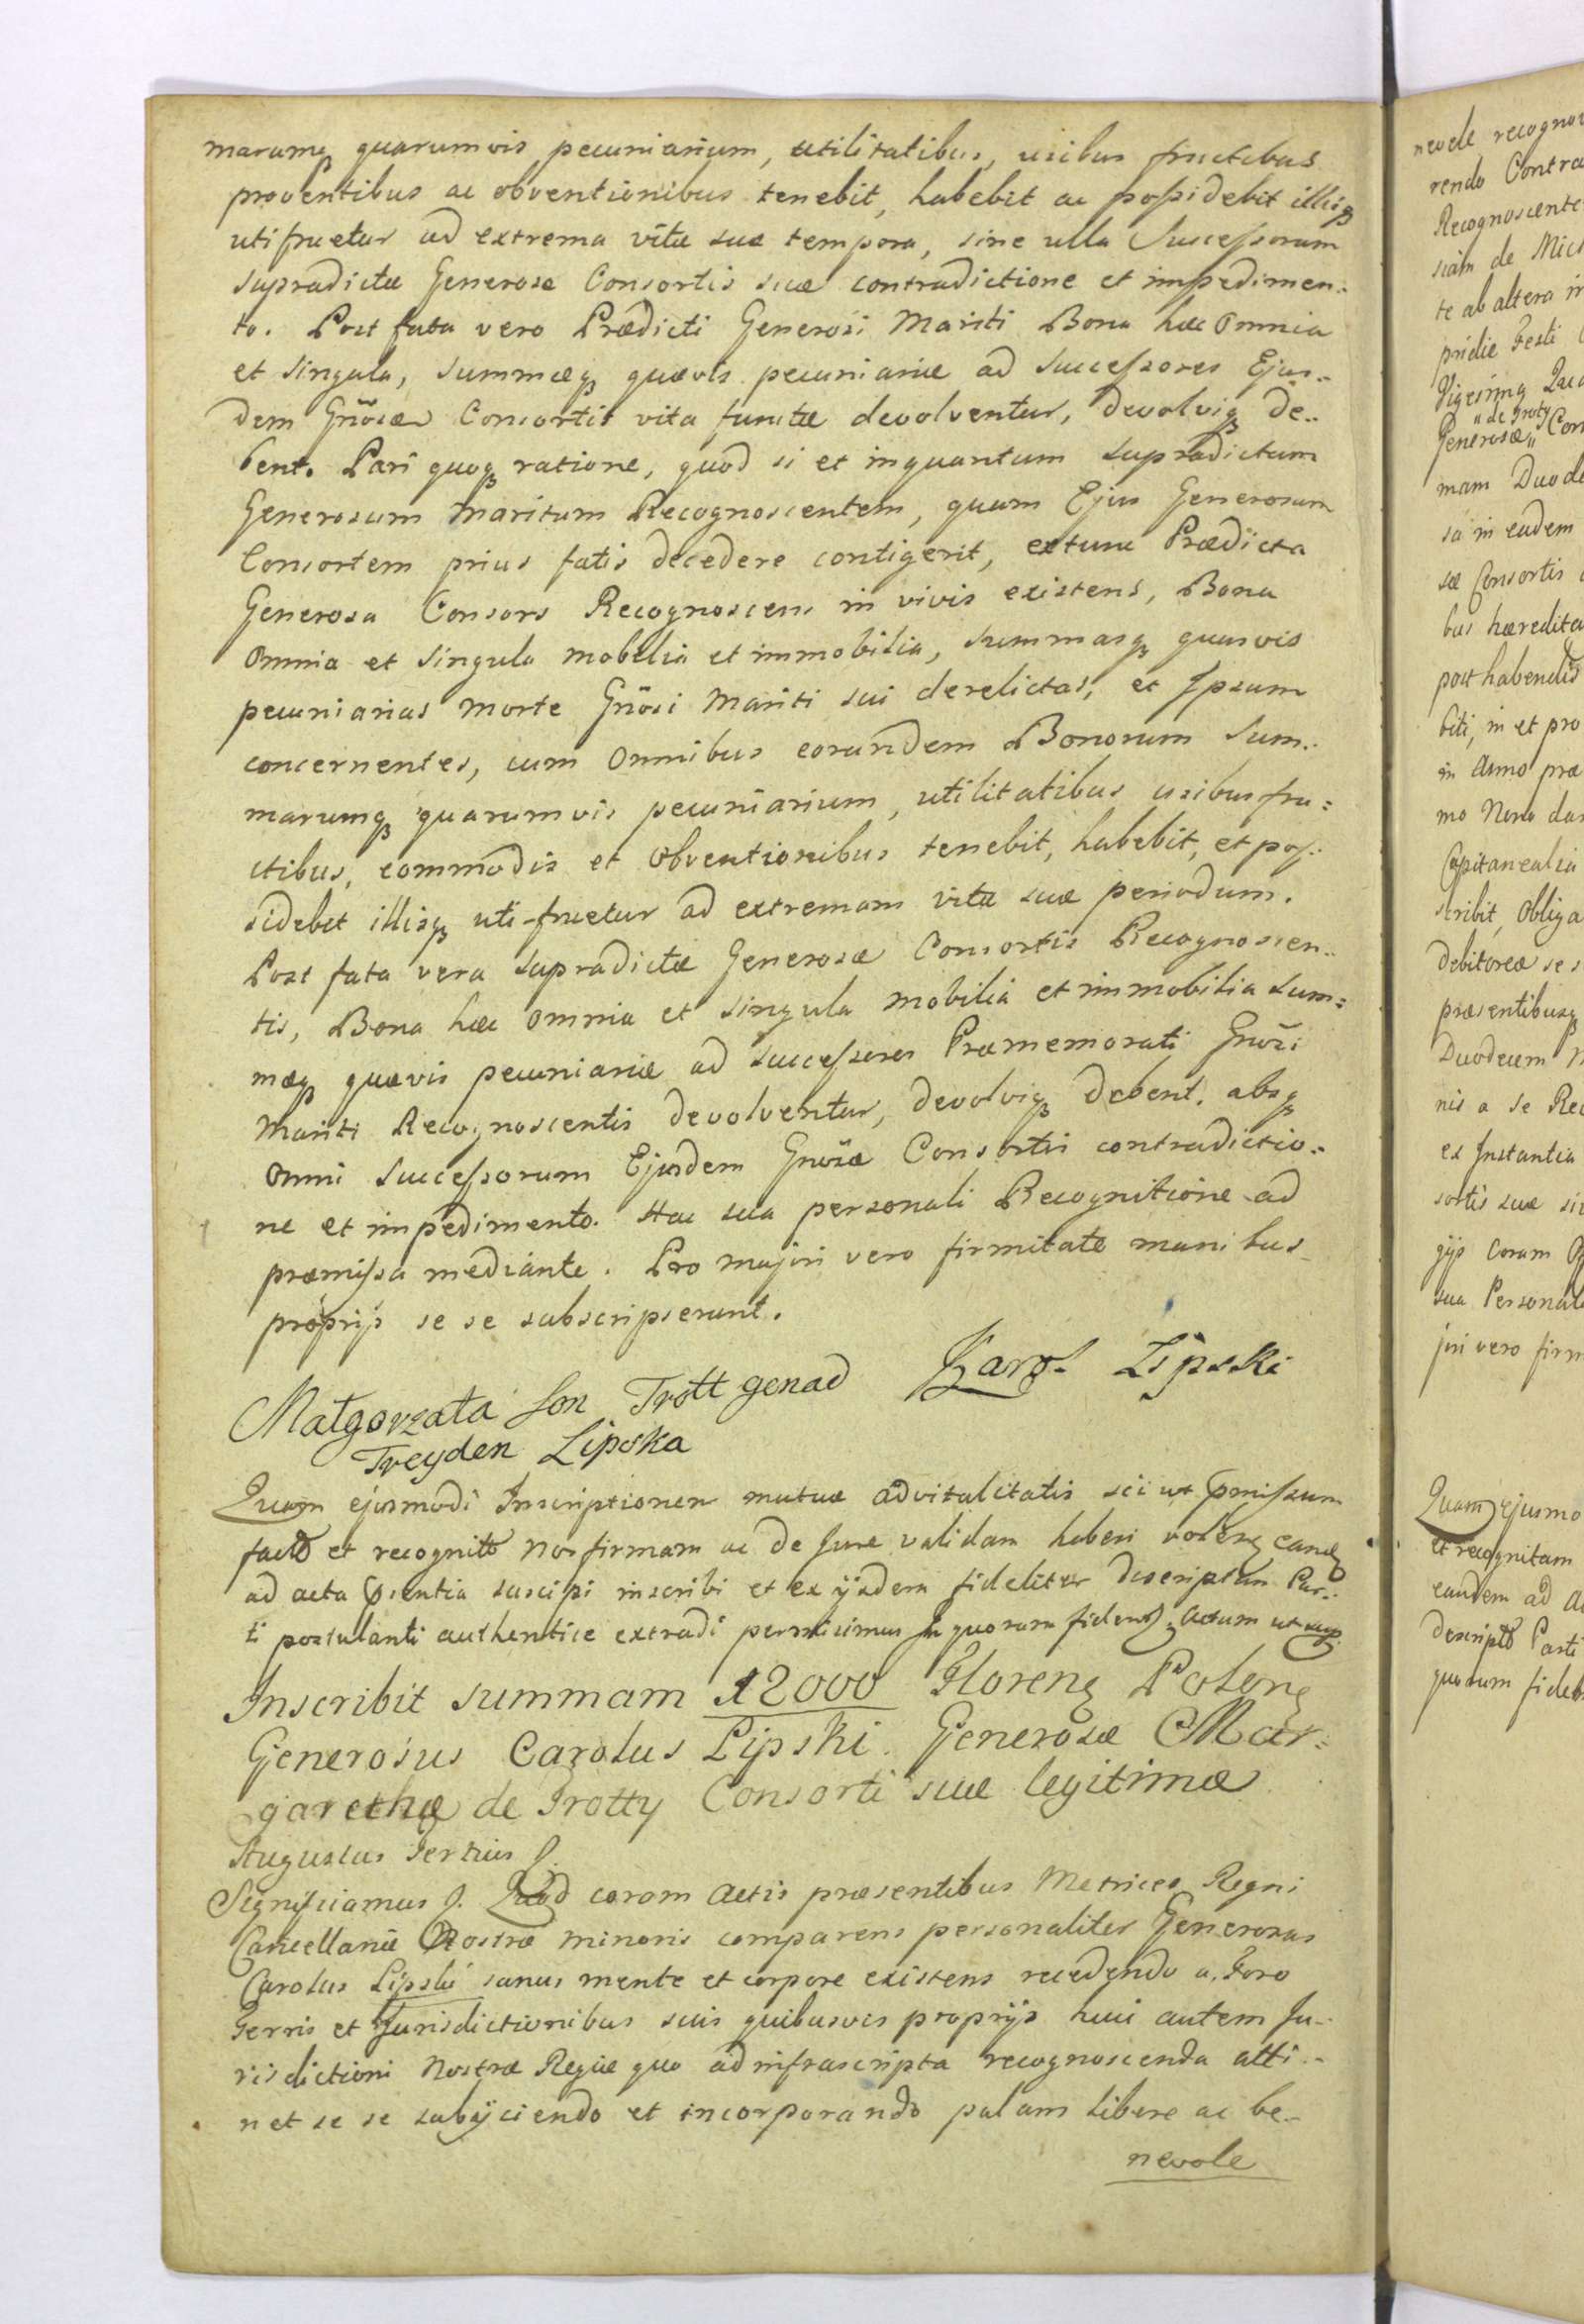 marumq quarumvis pecuniarium, utilitatibus, usibus fructibus
proventibus ac obventionibus tenebit, habebit ac possidebit illisq
utifruetur ad extrema vitæ suæ tempora, sine ulla Successorum
supradictæ Generosæ Consortis suæ contradictione et impedimen-
to. Post fata vero Prædicti Generosi Mariti Bona hæc omnia
et singula, summæq quævis pecuniariæ ad successores Ejus-
dem Gnosæ Consortis vita functæ devolventur, devolviq de-
bent. Pari quoq ratione, quod si et inquantum supradictum
Generosum Maritum Recognoscentem, quam Ejus Generosam
Consortem prius fatis decedere contigerit, extunc Prædicta
Generosa Consors Recognoscens in vivis existens, Bona
omnia et singula mobilia et immobilia, summasq quasvis
pecuniarias morte Gnosi Mariti sui derelictas, et Ipsum
concernentes, cum omnibus eorundem Bonorum sum-
marumq quarumvis pecuniarium, utilitatibus usibus fru-
ctibus, commodis et obventionibus tenebit, habebit, et pos-
sidebit illisq uti-fruetur ad extremam vitæ suæ periodum.
Post fata vero supradictæ Generosæ Consortis Recognoscen-
tis, Bona hæc omnia et singula mobilia et immobilia sum-
mæq quævis pecuniariæ ad successores Præmemorati Gnosi
Mariti Recognoscentis devolventur, devolviq debent. absq
omni successorum Ejusdem Gnosæ Consortis contradictio-
ne et impedimento. Hac sua personali Recognitione ad
præmissa mediante. Pro majori vero firmitate manibus
proprijs se se subscripserunt.
Karol Lipski
Małgorzata fon Trott genad
Treyden Lipska
Quam ejusmodi Inscriptionem mutuæ advitalitatis sic ut pmissum
facto et recognito nos firmam ac de Jure validam haberi volen eand
ad acta psentia suscipi inscribi et ex ijsdem fideliter descriptam Par-
ti postulanti authentice extradi permisimus In quorum fidem Actum ut sup
Inscribit summam 12000 Floren Polon
Generosus Carolus Lipski Generosæ Mar-
garethæ de Trotty Consorti suæ legitimæ
Augustus Tertius
Significamus Quod coram Actis præsentibus Metrices Regni
Cancellariæ Nostræ minoris comparens personaliter Generosus
Carolus Lipski sanus mente et corpore existens recedendo a Foro
Terris et Jurisdictionibus suis quibusvis proprijs huic autem Ju-
risdictioni Nostræ Regiæ quo ad infrascripta recognoscenda atti-
net se se subijciendo et incorporando palam libere ac be-
nevole
nevole recogno
rendo Contra
Recognoscente
sciam de
te ab altera in
pridie Festi
Vigesima
„de Troty
Generosæ„ Con
mam Duode
sa in eadem
sæ Consortis
bus hæredita
post habendis
biti, in et pro
in Anno præ
mo Nono
Capitanealia
scribit, obliga
debitorea se
præsentibusq
Duodecim
nis a se Rec
ex Instantia
sortis suæ
gijs coram
sua Personal
jori vero firm
Quam ejusmo
et recognitam
eandem ad
descripto Parti
quorum fidem